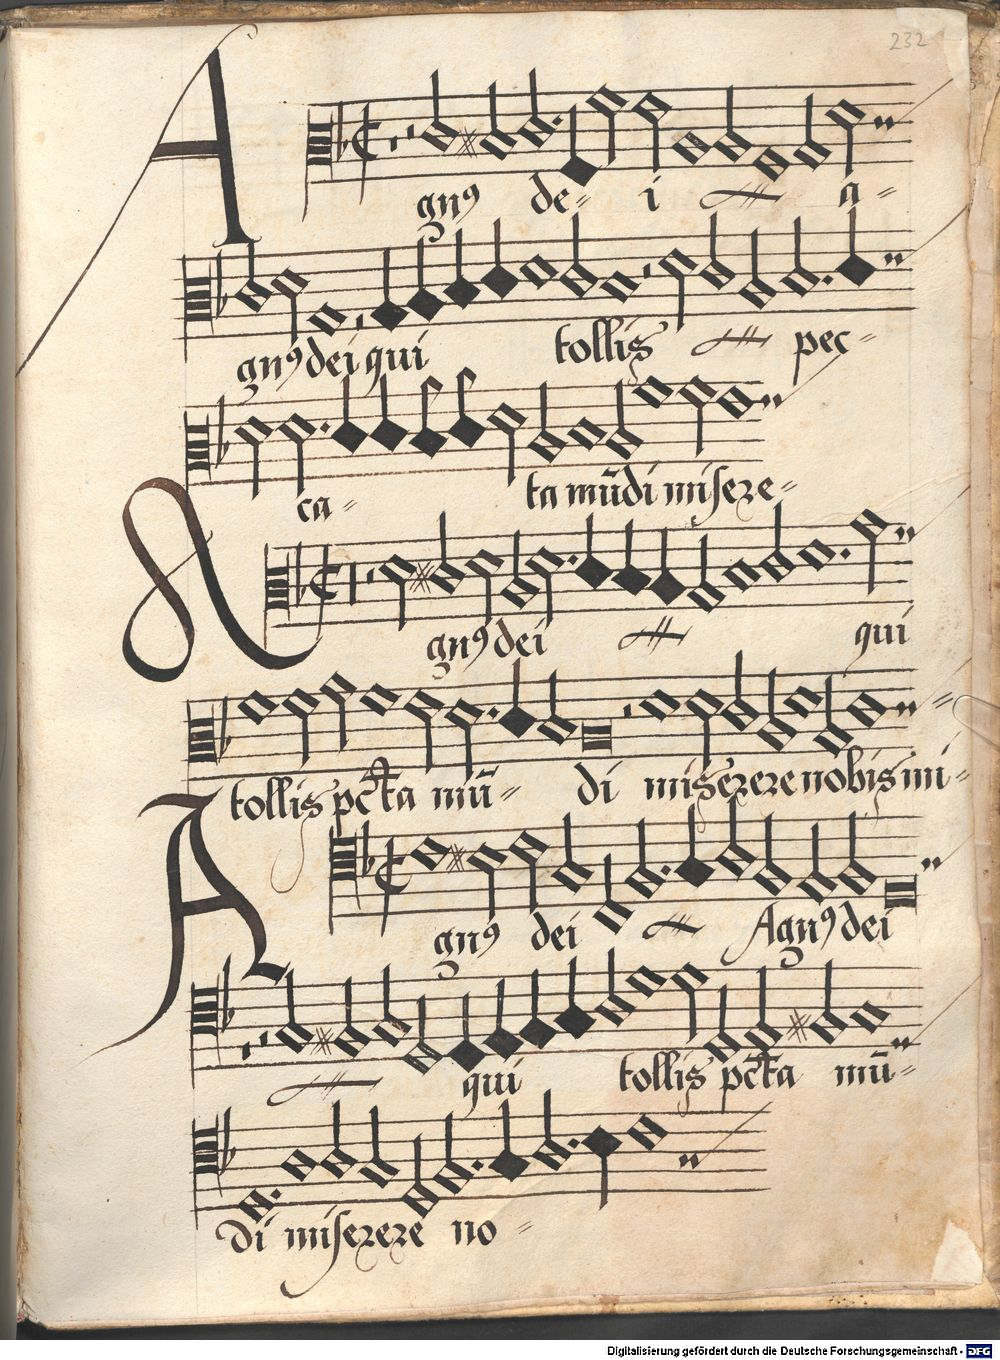 232
Agnꝰ de= i a=
gnꝰ dei qui tollis pec=
ca= ta mūdi misere=
Agnꝰ dei qui
tollis pc̄ta mū= di miserere nobis mi=
Agnꝰ dei Agnꝰ dei
qui tollis pc̄ta mū=
di miserere no=
Digitalisierung gefördert durch die Deutsche Forschungsgemeinschaft - DFG